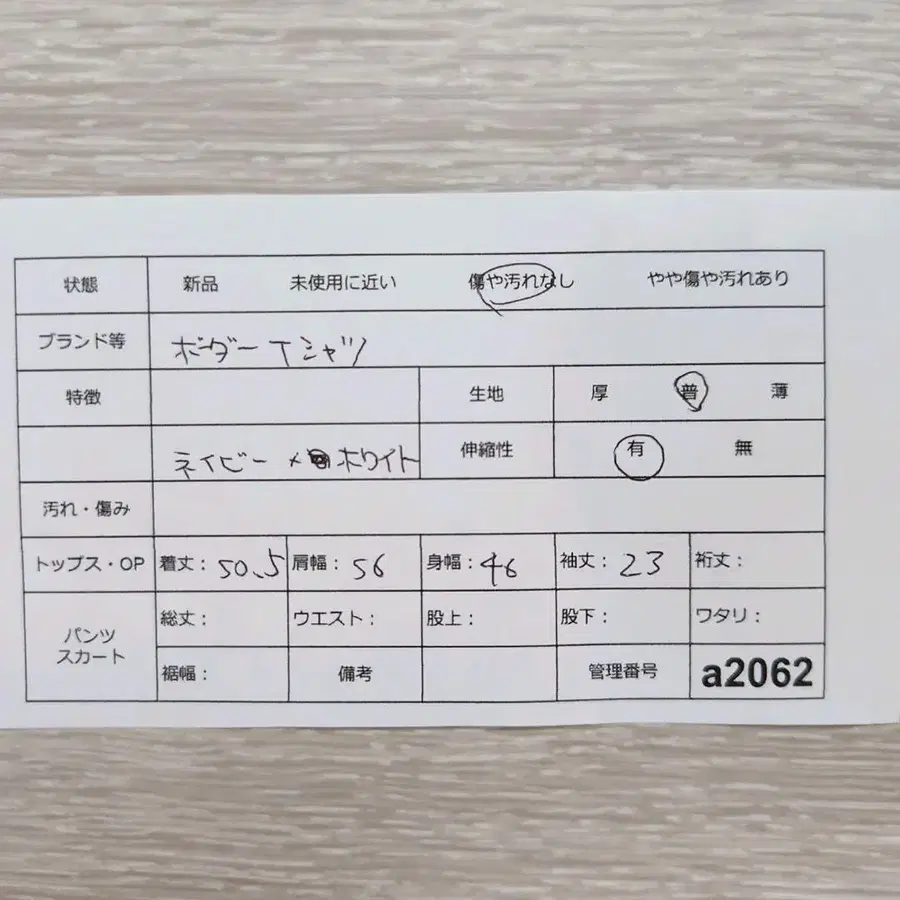 状態 新品 未使用に近い 傷や汚れなし やや傷や汚れあり
ブランド等 ボーダーTシャツ
特徴 生地 厚 普 薄
ネイビー × ホワイト 伸縮性 有 無
汚れ・傷み
トップス・OP 着丈: 50.5 肩幅: 56 身幅: 46 袖丈: 23 裄丈:
パンツ スカート 総丈: ウエスト: 股上: 股下: ワタリ:
裾幅: 備考 管理番号 a2062